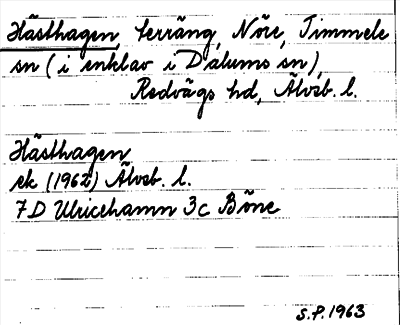 Hästhagen, terräng, Nöre, Timmele
sn (i enklav i Dalums sn),
Redvägs hd, Älvsb. l.
Hästhagen
ek (1962) Älvsb. l.
7D Ulricehamn 3c Böne
S.P. 1963